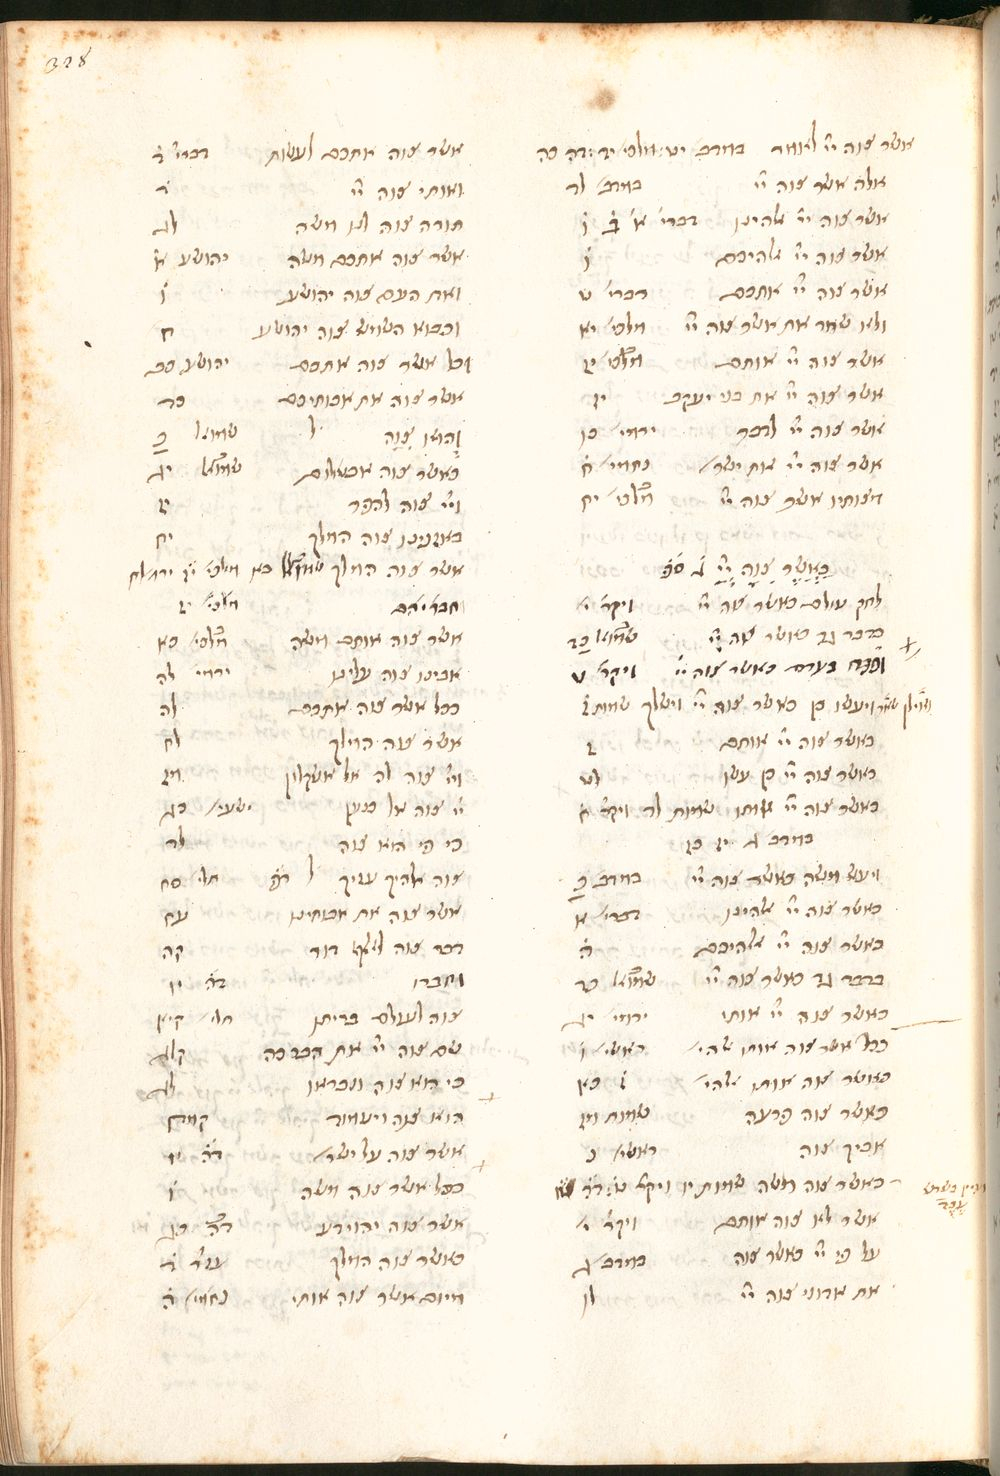 328
אשר צוה יי לאמר במדב׳
אלה אשר צוה יי במדב׳ לד
אשר צוה יי אלהינו דברי׳ א׳ ו׳
אשר צוה יי אלהיכם ו׳
אשר צוה יי אתכם דברי׳ ט
ולא שמר את אשר צוה יי מלכי׳ יא
אשר צוה יי אותם מלכי׳ יז
אשר צוה יי את בני יעקב יז
אשר צוה יי לדבר ירמי׳ כו
אשר צוה יי את ישר׳ נחמי׳ ח׳
מצותיו אשר צוה יי מלכי׳ יח
כאשר צוה יי
לחק עולם כאשר צוה יי ויקר׳ י׳
כדבר גד כאשר צוה יי שמוא׳ כד
כאשר צוה יי ויקר׳ ט
ויעשו כן כאשר צוה יי וישלך שמות ז׳
כאשר צוה יי אותם ז
כאשר צוה יי כן עשו לט
כאשר צוה יי אותו שמות לד ויקר׳ ח׳
במדב׳ ג יז כז
ויעש משה כאשר צוה יי במדב׳ כ
כאשר צוה יי אלהינו דברי׳ א
כאשר צוה יי אלהיכם ה׳
כדבר גד כאשר צוה יי שמוא׳ כד
כאשר צוה יי אותי ירמי׳ יג
ככל אשר צוה אותו אלהי׳ בראשי׳ ו׳
כאשר צוה אותו אלהי׳ ז׳ כא
כאשר צוה פרעה שמות מז
אביך צוה בראשי׳ נ
כאשר צוה משה שמות יו ויקר׳ ט׳
אשר לא צוה אותם ויקר׳ י׳
על פי יי כאשר צוה במדב׳ ג
את אדוני צוה יי לו
אשר צוה אתכם לעשות דברי׳ ד׳
ואותי צוה יי ד׳
תורה צוה לנו משה לג
אשר צוה אתכם משה יהושע א׳
ואת העם צוה יהושע ו׳
וכבוא השמש צוה יהושע ח׳
וכל אשר צוה אתכם יהושע כב
אשר צוה את אבותיכם כד
והוא צוה ל׳ שמוא׳ ב
כאשר צוה אבשלום שמוא׳ יג
ויי צוה להפר יז
באזנינו צוה המלך יח
אשר צוה המלך
וחבריהם מלכי׳ יז
אשר צוה אותם משה מלכי׳ כא
אבינו צוה עלינו ירמי׳ לה
ככל אשר צוה אתכם לה
אשר צוה המלך לח
ויי צוה לה אל אשקלון מז
יי צוה אל כנען ישעי׳ כג
כי פי הוא צוה לד
צוה אלהיך עוזך תלי׳ סח
אשר צוה את אבותינו עח
דבר צוה לאלף דור קה
וחברו יו
צוה לעולם בריתו תלי׳ קיא
שם צוה יי את הברכה קלג
כי הוא צוה ונבראו
הוא צוה ויעמוד
אשר צוה על ישר׳
ככל אשר צוה משה ו׳
אשר צוה יהוידע כג
כאשר צוה המלך עזר׳ ד׳
מיום אשר צוה אותי נחמי׳ ה׳